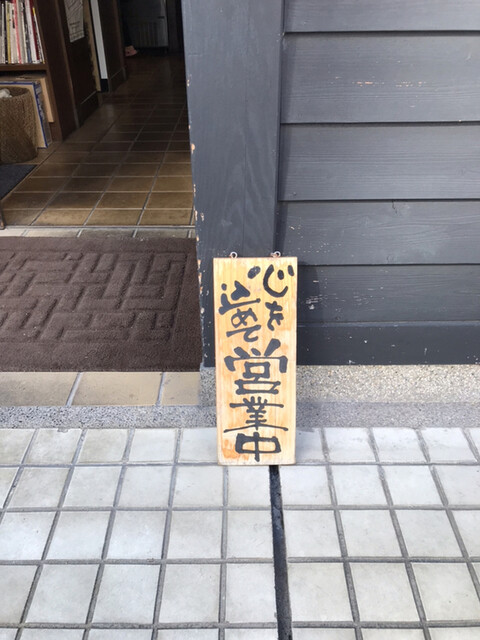 心を
込めて
営業中